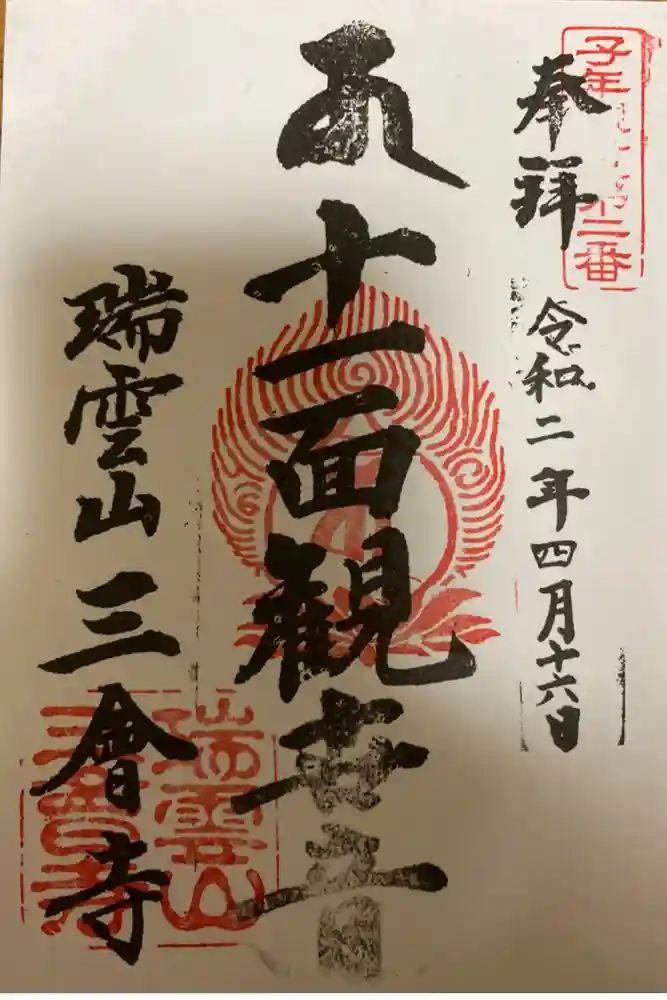 子年
二番
奉拝
令和二年四月十六日
十一面観世音
瑞雲山三會寺
瑞雲山
三會寺